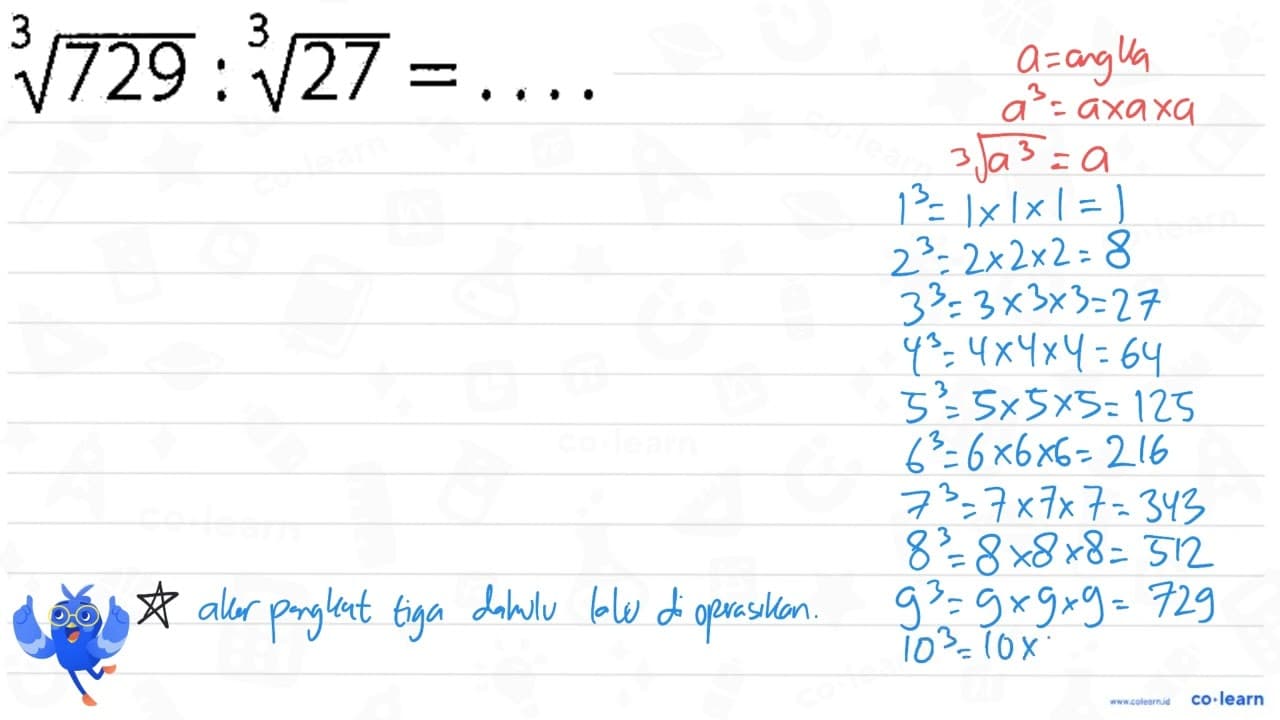 ∛729 : ∛27 = ....
a = angka
a³ = a×a×a
∛a³ = a
1³ = 1×1×1 = 1
2³ = 2×2×2 = 8
3³ = 3×3×3 = 27
4³ = 4×4×4 = 64
5³ = 5×5×5 = 125
6³ = 6×6×6 = 216
7³ = 7×7×7 = 343
8³ = 8×8×8 = 512
9³ = 9×9×9 = 729
10³ = 10×
☆ akar pangkat tiga dahulu lalu di operasikan.
www.colearn.id
co·learn